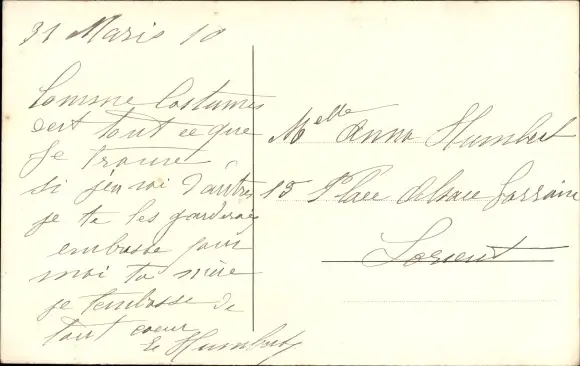 31 Mars 10
Comme Costumes
cest tout ce que
je trouve
si j'en voi d'autres
je te les garderai
embrasse pour
moi ta mère
je t'embrasse de
tout coeur
Humbert
Melle Anna Humbert
15 Place Alsace Lorraine
Lorient